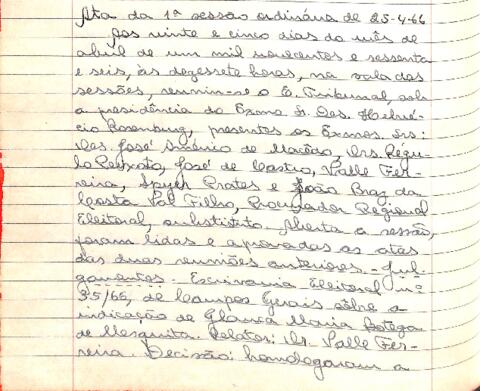 Ata da 1ª sessão ordinária de 25-4-66
Aos vinte e cinco dias do mês de
abril de um mil novecentos e sessenta
e seis, às dezessete horas, na sala das
sessões, reuniu-se o E. Tribunal, sob
a presidência do Exmo. Sr. Des. Helvé-
cio Rosenburg, presentes os Exmos. Srs:
Des. José Américo de Macêdo, Drs. Régu-
lo Peixoto, José de Castro, Valle Fer-
reira, Spyer Prates e João Braz da
Costa Val Filho, Procurador Regional
Eleitoral, substituto. Aberta a sessão,
foram lidas e aprovadas as atas
das duas reuniões anteriores. - Jul-
gamentos - Escrivania Eleitoral nº
35/65, de Campos Gerais sôbre a
indicação de Glaura Maria Botega
de Mesquita. Relator: Dr. Valle Fer-
reira. Decisão: homologaram a